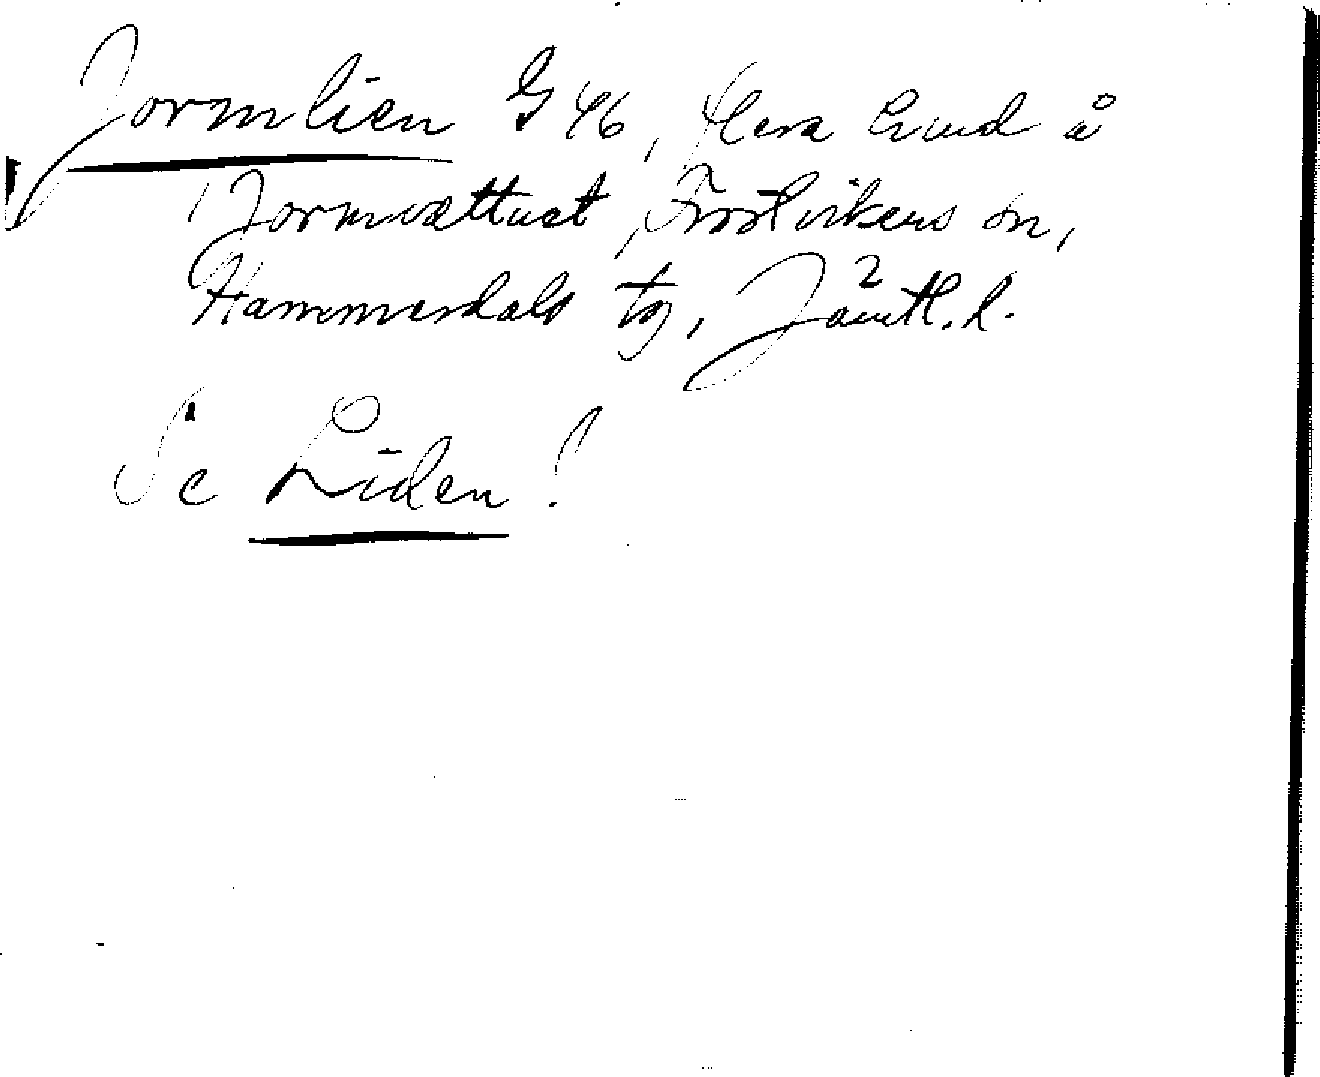 Jormlien G 46, flera hmd å
Jormvattnet, Frostvikens sn,
Hammerdals tg, Jämtl. l.
Se Liden!